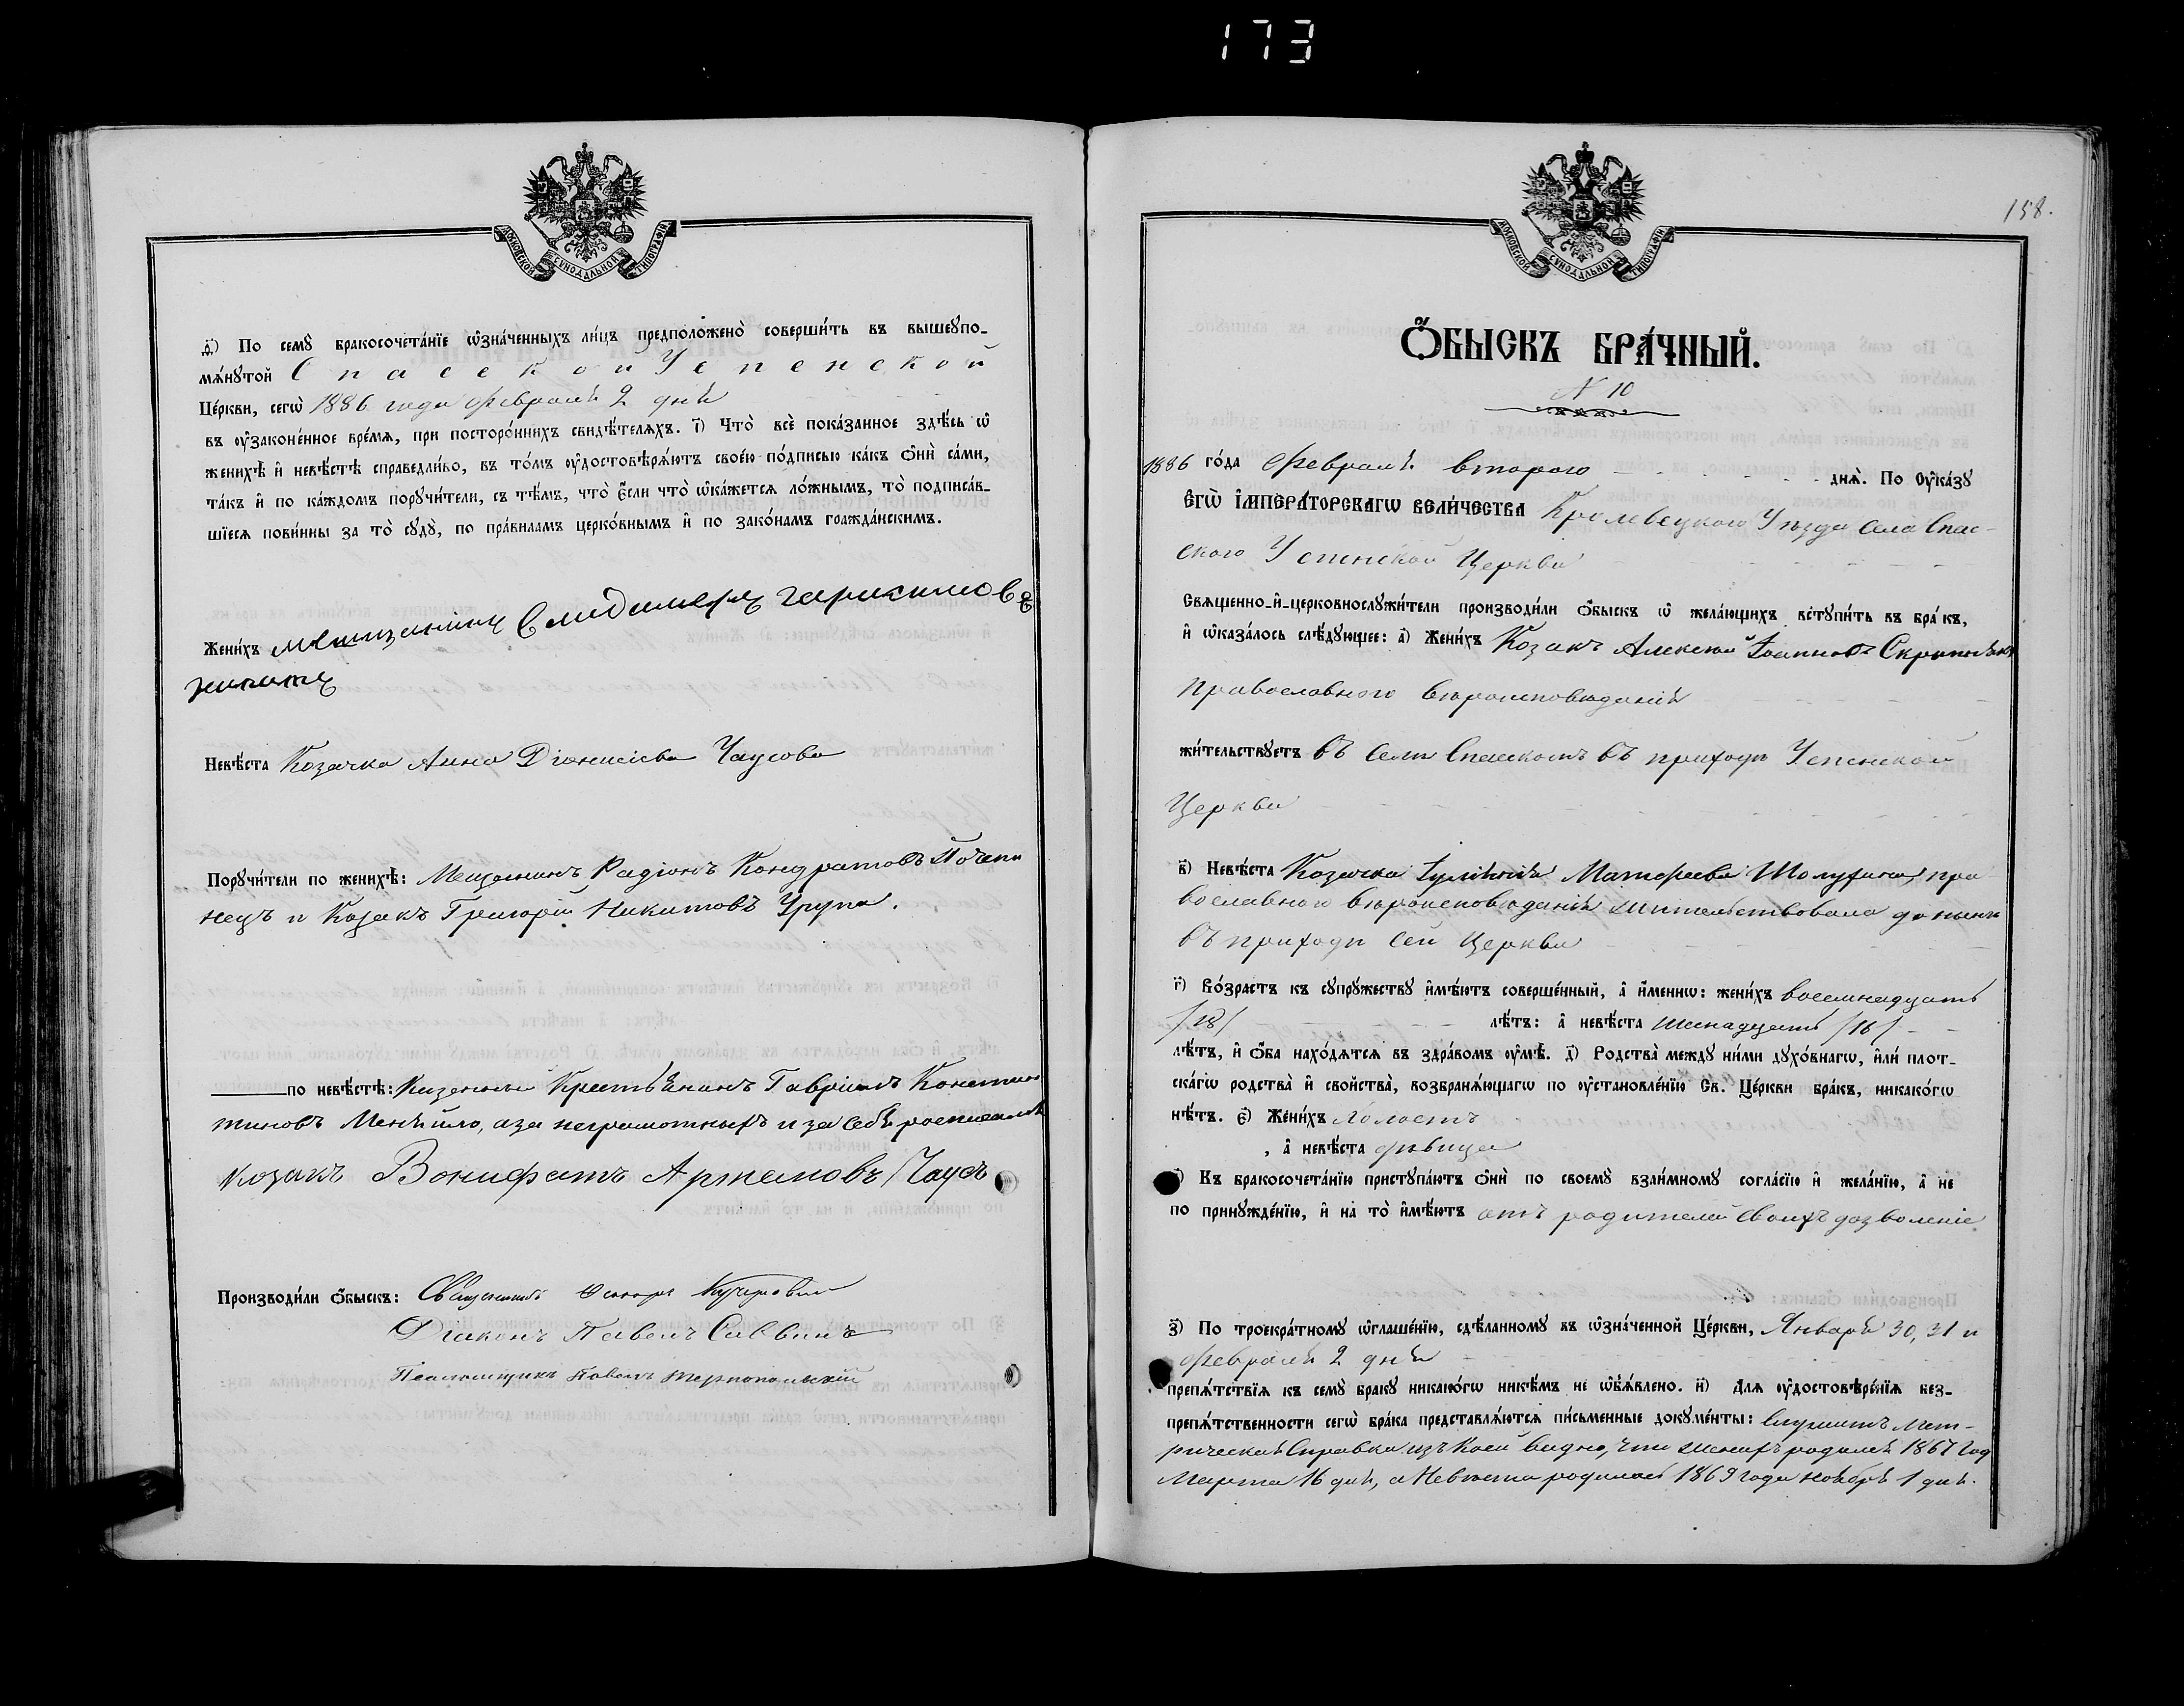 173
МОСКОВСКОЙ СѴНОДАЛЬНОЙ ТИПОГРАФІИ
д҃) По семꙋ бракосочета́нїе ѡ҆зна́ченныхъ ли́цъ предположено̀ соверши́ть въ вышеꙋпо-
мѧ́нꙋтой Спасской Успенской
Це́ркви, сегѡ̀ 1886 года Февраля 2 дня
въ ᲂу҆законе́нное вре́мѧ, при посторо́ннихъ свидѣ́телѧхъ. і҃) Что̀ всѐ пока́занное здѣ́сь ѡ҆
женихѣ̀ и҆ невѣ́стѣ справедли́во, въ то́мъ ᲂу҆достовѣрѧ́ютъ свое́ю по́дписью ка́къ ѻ҆нѝ са́ми,
та́къ и҆ по ка́ждомъ порꙋчи́тели, съ тѣ́мъ, что̀ є҆́сли что̀ ѡ҆ка́жетсѧ ло́жнымъ, то̀ подписа́в-
шїесѧ пови́нны за то̀ сꙋдꙋ̀, по пра́виламъ церко́внымъ и҆ по зако́намъ гражда́нскимъ.
Жени́хъ мещанинъ Владимеръ герасимовъ
Невѣ́ста Козачка Анна Діонисіева Чаусова
Порꙋчи́тели по женихѣ̀: Мещанинъ Радіонъ Кондратовъ Почепи
нецъ и Козакъ Григорій Никитовъ Урупа.
по невѣ́стѣ: Казенный Крестьянинъ Гавріилъ Констан
тиновъ Меняйло, а за неграмотныхъ и за себя росписался
козакъ Вонифатъ Артемовъ Чаусъ
Производи́ли ѻ҆́быскъ: Священникъ
Діаконъ Павелъ Саввинъ
Псаломщикъ Павелъ Тернопольскій
158.
МОСКОВСКОЙ СѴНОДАЛЬНОЙ ТИПОГРАФІИ
Ѻ҆́БЫСКЪ БРА́ЧНЫЙ.
N 10
1886 го́да Февраля второго днѧ̀. По ᲂу҆ка́зꙋ
Є҆ГѠ̀ І҆МПЕРА́ТОРСКАГѠ ВЕЛИ́ЧЕСТВА Кролевецкого Уѣзда села Спас-
ского Успенской Церкви
Свѧще́нно-и҆-церковнослꙋжи́тели производи́ли ѻ҆́быскъ ѡ҆ жела́ющихъ встꙋпи́ть въ бра́къ,
и҆ ѡ҆каза́лось слѣ́дꙋющее: а҃) Жени́хъ Козакъ Алексей Іоанновъ
православного вѣроисповѣданія
жи́тельствꙋетъ въ селѣ Спасскомъ въ приходѣ Успенской
Церкви
в҃) Невѣ́ста Козачка Іуліянія Матфеева пра
вославного вѣроисповѣданія жительствовала до нынѣ
въ приходѣ сей Церкви
г҃) Во́зрастъ къ сꙋпрꙋ́жествꙋ и҆мѣ́ютъ соверше́нный, а҆ и҆́меннѡ: жени́хъ восемнадцать
/18/ лѣ́тъ: а҆ невѣ́ста шеснадцать /16/
лѣ́тъ, и҆ ѻ҆́ба нахо́дѧтсѧ въ здра́вомъ ᲂу҆мѣ̀. д҃) Родства̀ междꙋ ни́ми дꙋхо́внагѡ, и҆лѝ пло́т-
скагѡ родства̀ и҆ сво́йства, возбранѧ́ющагѡ по ᲂу҆становле́нїю Св. Це́ркви бра́къ, никако́гѡ
нѣ́тъ. є҃) Жени́хъ холостъ
, а҆ невѣ́ста дѣвица
) Къ бракосочета́нїю пристꙋпа́ютъ ѻ҆нѝ по своемꙋ̀ взаи́мномꙋ согла́сїю и҆ жела́нїю, а҆ не
по принꙋжде́нїю, и҆ на то̀ и҆мѣ́ютъ отъ родителей своихъ дозволеніе.
з҃) По троекра́тномꙋ ѡ҆глаше́нїю, сдѣ́ланномꙋ въ ѡ҆зна́ченной Це́ркви, Января 30, 31 и
Февраля 2 дня
препѧ́тствїѧ къ семꙋ̀ бра́кꙋ никако́гѡ никѣ́мъ не ѡ҆б̾ѧ́влено. и҃) Длѧ ᲂу҆достовѣре́нїѧ без-
препѧ́тственности сегѡ̀ бра́ка представлѧ́ютсѧ пи́сьменные докꙋме́нты: Служитъ мет-
рическая Справка изъ коей видно, что женихъ родился 1867 год
Марта 16 дня, а Невѣста родилась 1869 года ноября 1 дня.